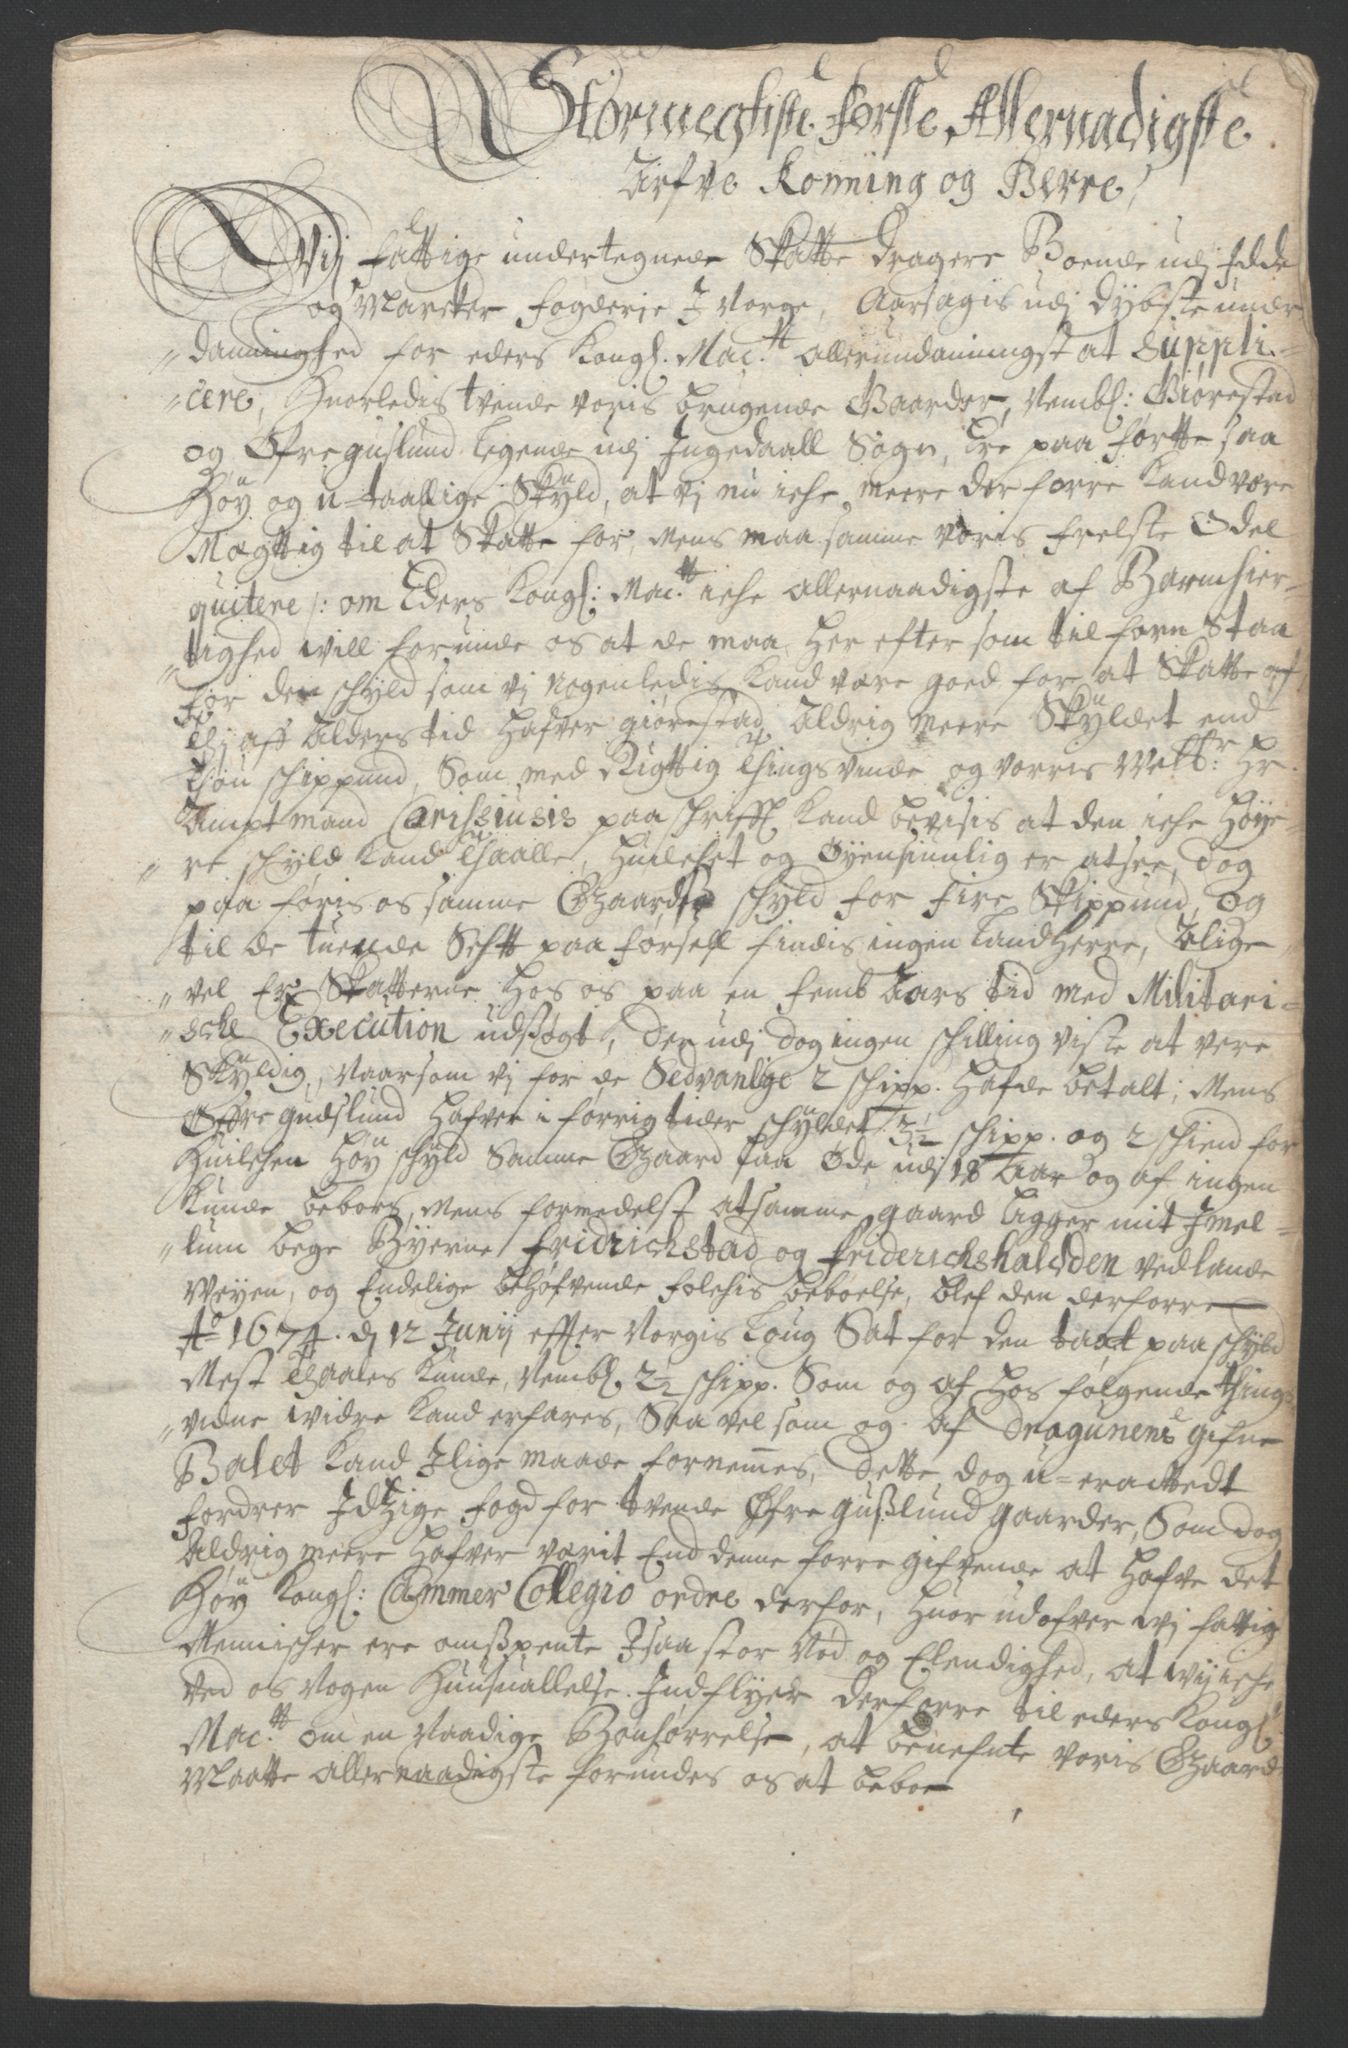 Stormegtiste Førsle, Allernadigste
Arfve Konning og Herre,
Vij fattige undertegnede Skatte dragere Boende udj Idde
og Marcker fogderie J Norge, Aarsagis udj dybeste under
daninghed for eders Kongl. Mac.tt allerundaningst at Suppli-
cere, Huorledis tvende voris brugende Gaarder, Nembl: Giørestad
og Øfre guslund legende udj Ingedaall Sogn, Ere paa førtte saa
Høy og u-taallige Skyld, at vj nu iche meere der forre kand være
Megttig til at Skatte for, mens maa samme voris frelste Odel
quitere /: om Eders Kongl: Mac.tt iche allernaadigste af Barmhier-
tighed will forunde os at de maa her efter som til forn staa
for den schyld som vj nogenledis kand være goed for at Skatte af
Thj aff Alders tid Hafver giørestad Aldrig meere Skyldet end
Thou schippund, Som med Rigttig Thingsvinde og vorris Welb:r Hr.
Amptmand Carisiusis paa schrifft kand bevisis at den iche Høye-
re schyld kand Thaalle, Huilchet og Øyensiunlig er at see, dog
paa føris os samme Gaards schyld for fire Skippund, og
til de tuende Sehtt paa førsell findis ingen Landherre, Alige-
vel Er Skatterne Hos os paa en femb Aars tid med Militari-
sche Execution udsøgt, der udj dog ingen schilling viste at vere
Skyldig, Naarsom vj for de Sedvanlige 2 schipp. Hafde betalt; Mens
Øffre guslund Hafver i førrig tider schyldet 3½ schipp. og 2 schiend for
Huilchen Høy schyld Samme Gaard laa Øde udj 18 Aar og af ingen
Kunde bebors, Mens formedelst at samme gaard ligger mit Jmel-
lum bege Byerne Fridrichstad og Friderichshalsden ved lande
Weyen, og Endelige behøfvende folchis beboelse, blef den derforre
Ao 1674. d 12 Junij effter Norgis Loug Sat for den taxt paa schyld
Mest Thaales Kunde, Nembl. 2½ schipp. Som og af Hos følgende Things
vidne widre kand erfares, Saa vel som og af dragunens gifne
Balet kand J lige maade fornemmes, dette dog u-eracttedt
fordrer Jdtzige fogd for tvende Øfre gusslund gaarder, Som dog
Aldrig meere Hafver værit End denne forre gifvende at Hafve det
Høy Kongl: Cammer Collegio ordre derfor, Huor udofver wj fattig
Mennischer ere omsspente J saa stor Nød og Elendighed, at wij iche
ved os Nogen Huusuallelse. Indflyer derforre til eders Kongl
Mac.tt om en Naadige Bønhørrelse, at benefnte voris Gaard
Maatte allernaadigste forundes os at beboe